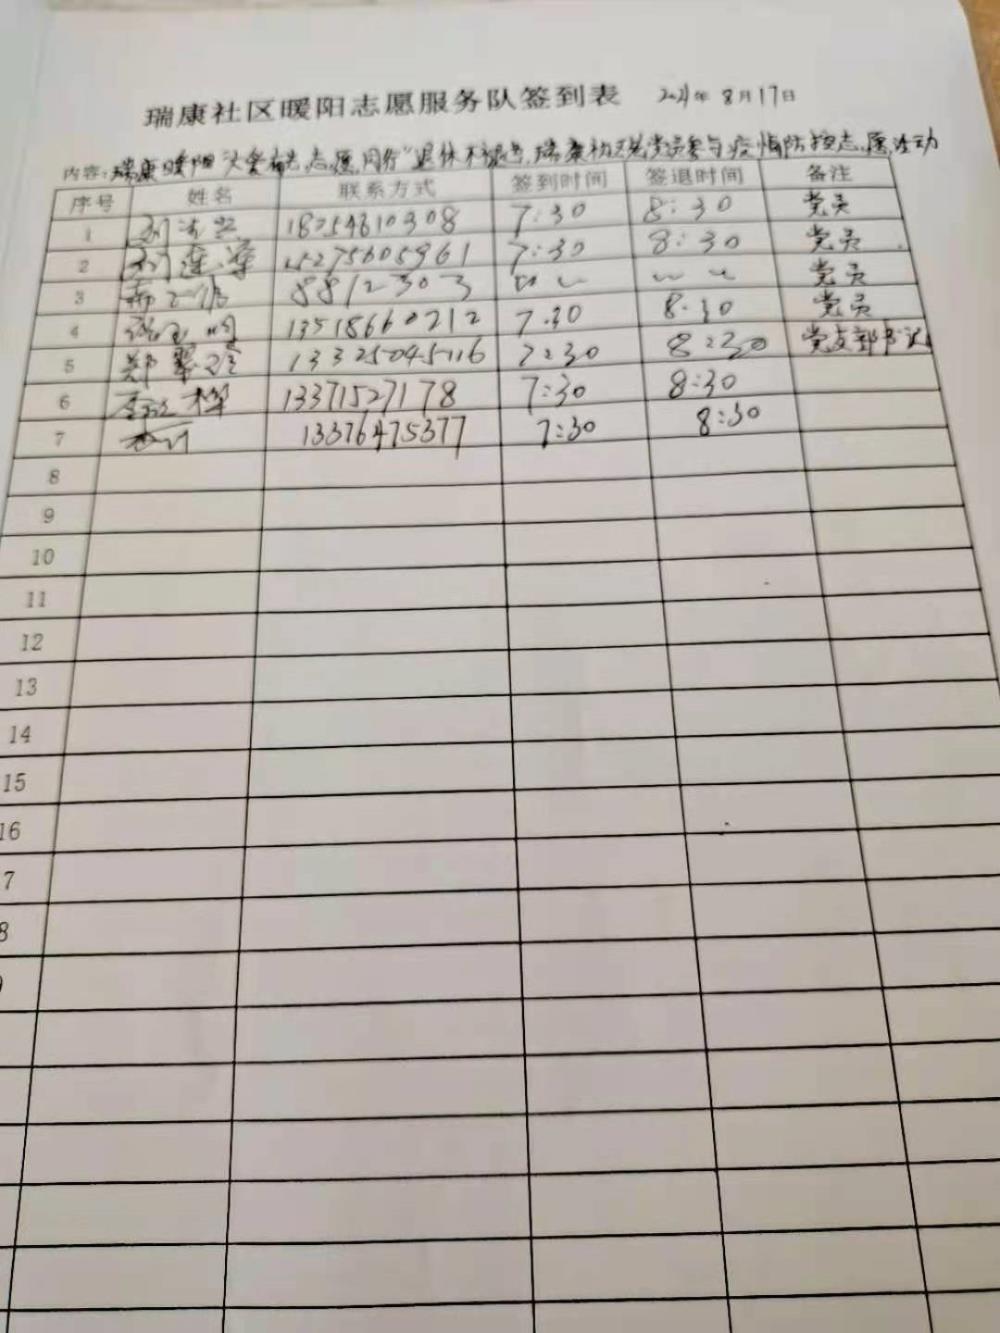 瑞康社区暖阳志愿服务队签到表 2021年8月17日
内容:瑞康暖阳 志愿同行"退休不褪色,瑞康社区党员参与疫情防控志愿活动
序号 姓名 联系方式 签到时间 签退时间 备注
1 18254610308 7:30 8:30 党员
2 刘莲 15275605961 7:30 8:30 党员
3 8812303 〃 〃 党员
4 13518660212 7:30 8:30 党员
5 郑翠 13325045116 7:30 8:30 党支部书记
6 13371527178 7:30 8:30
7 13376475377 7:30 8:30
8
9
10
11
12
13
14
15
16
7
8